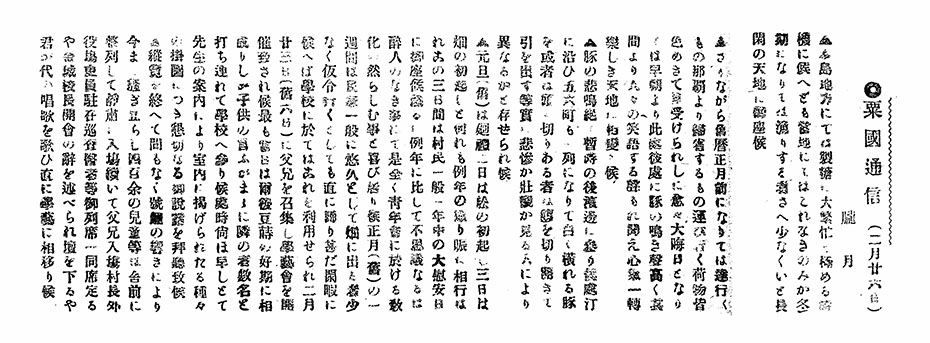 ◎粟國通信(二月廿六日)
朧月
▲本島地方にては製糖に大繁忙を極める時
機に候へども當地にてはこれなきのみか冬
期になりては漁りする者さへ少なくいと長
閑の天地に御座候
▲さりながら舊曆正月前になりては進行く
もの那覇より歸省するもの運び行く荷物皆
色めきて見受けられしに愈々大晦日となり
ては早朝より此處彼處に豚の鳴き聲高く裏
間より人々の笑語する聲もれ聞え心氣一轉
樂しき天地に相變り候、
▲豚の悲鳴絕て暫時の後濱邊に參り候處汀
に沿ひ五六町も一列になりて白く橫れる豚
を或者は頭を切りある者は腹を切り開きて
引を出す等實に悲慘か壯觀か見る人により
異なるかと存せられ候
▲元旦(舊)は廻禮二日は松の初起し三日は
畑の初起しと何れも例年の如く賑に相行は
れあの三日間は村民一般一年中の大慰安日
に御座候儀なるに例年に比して不思議なるは
醉人のなき事にて是全く靑年會に於ける敎
化の然らしむ事と喜び居り候正月(舊)の一
週間は民家一般に悠久として畑に出る者少
なく仮令行くとしても直に歸り甚だ閑暇に
候へば學校に於てはこれを利用せられ二月
廿三日(舊六日)に父兄を召集し學藝會を開
催致され候最も當日は爾後豆蒔の好期に相
成りしが子供の喜ぶがまゝに隣の者數名と
打ち連れて學校へ參り候處時尙は早しとて
先生の案內により室內に揭げられたる種々
の掛圖につき懇切なる御說諭を拜聽致候
▲縱覽を終へて間もなく號鐘の響きにより
今まで騷ぎ立らし四百余の兒童等は舍前に
整列して靜肅に入場續いて父兄入場村長外
役場吏員駐在巡査醫者等御列席一同席定る
や金城校長開會の辭を述べられ壇を下るや
君が代の唱歌を歌ひ直に學藝に相移り候